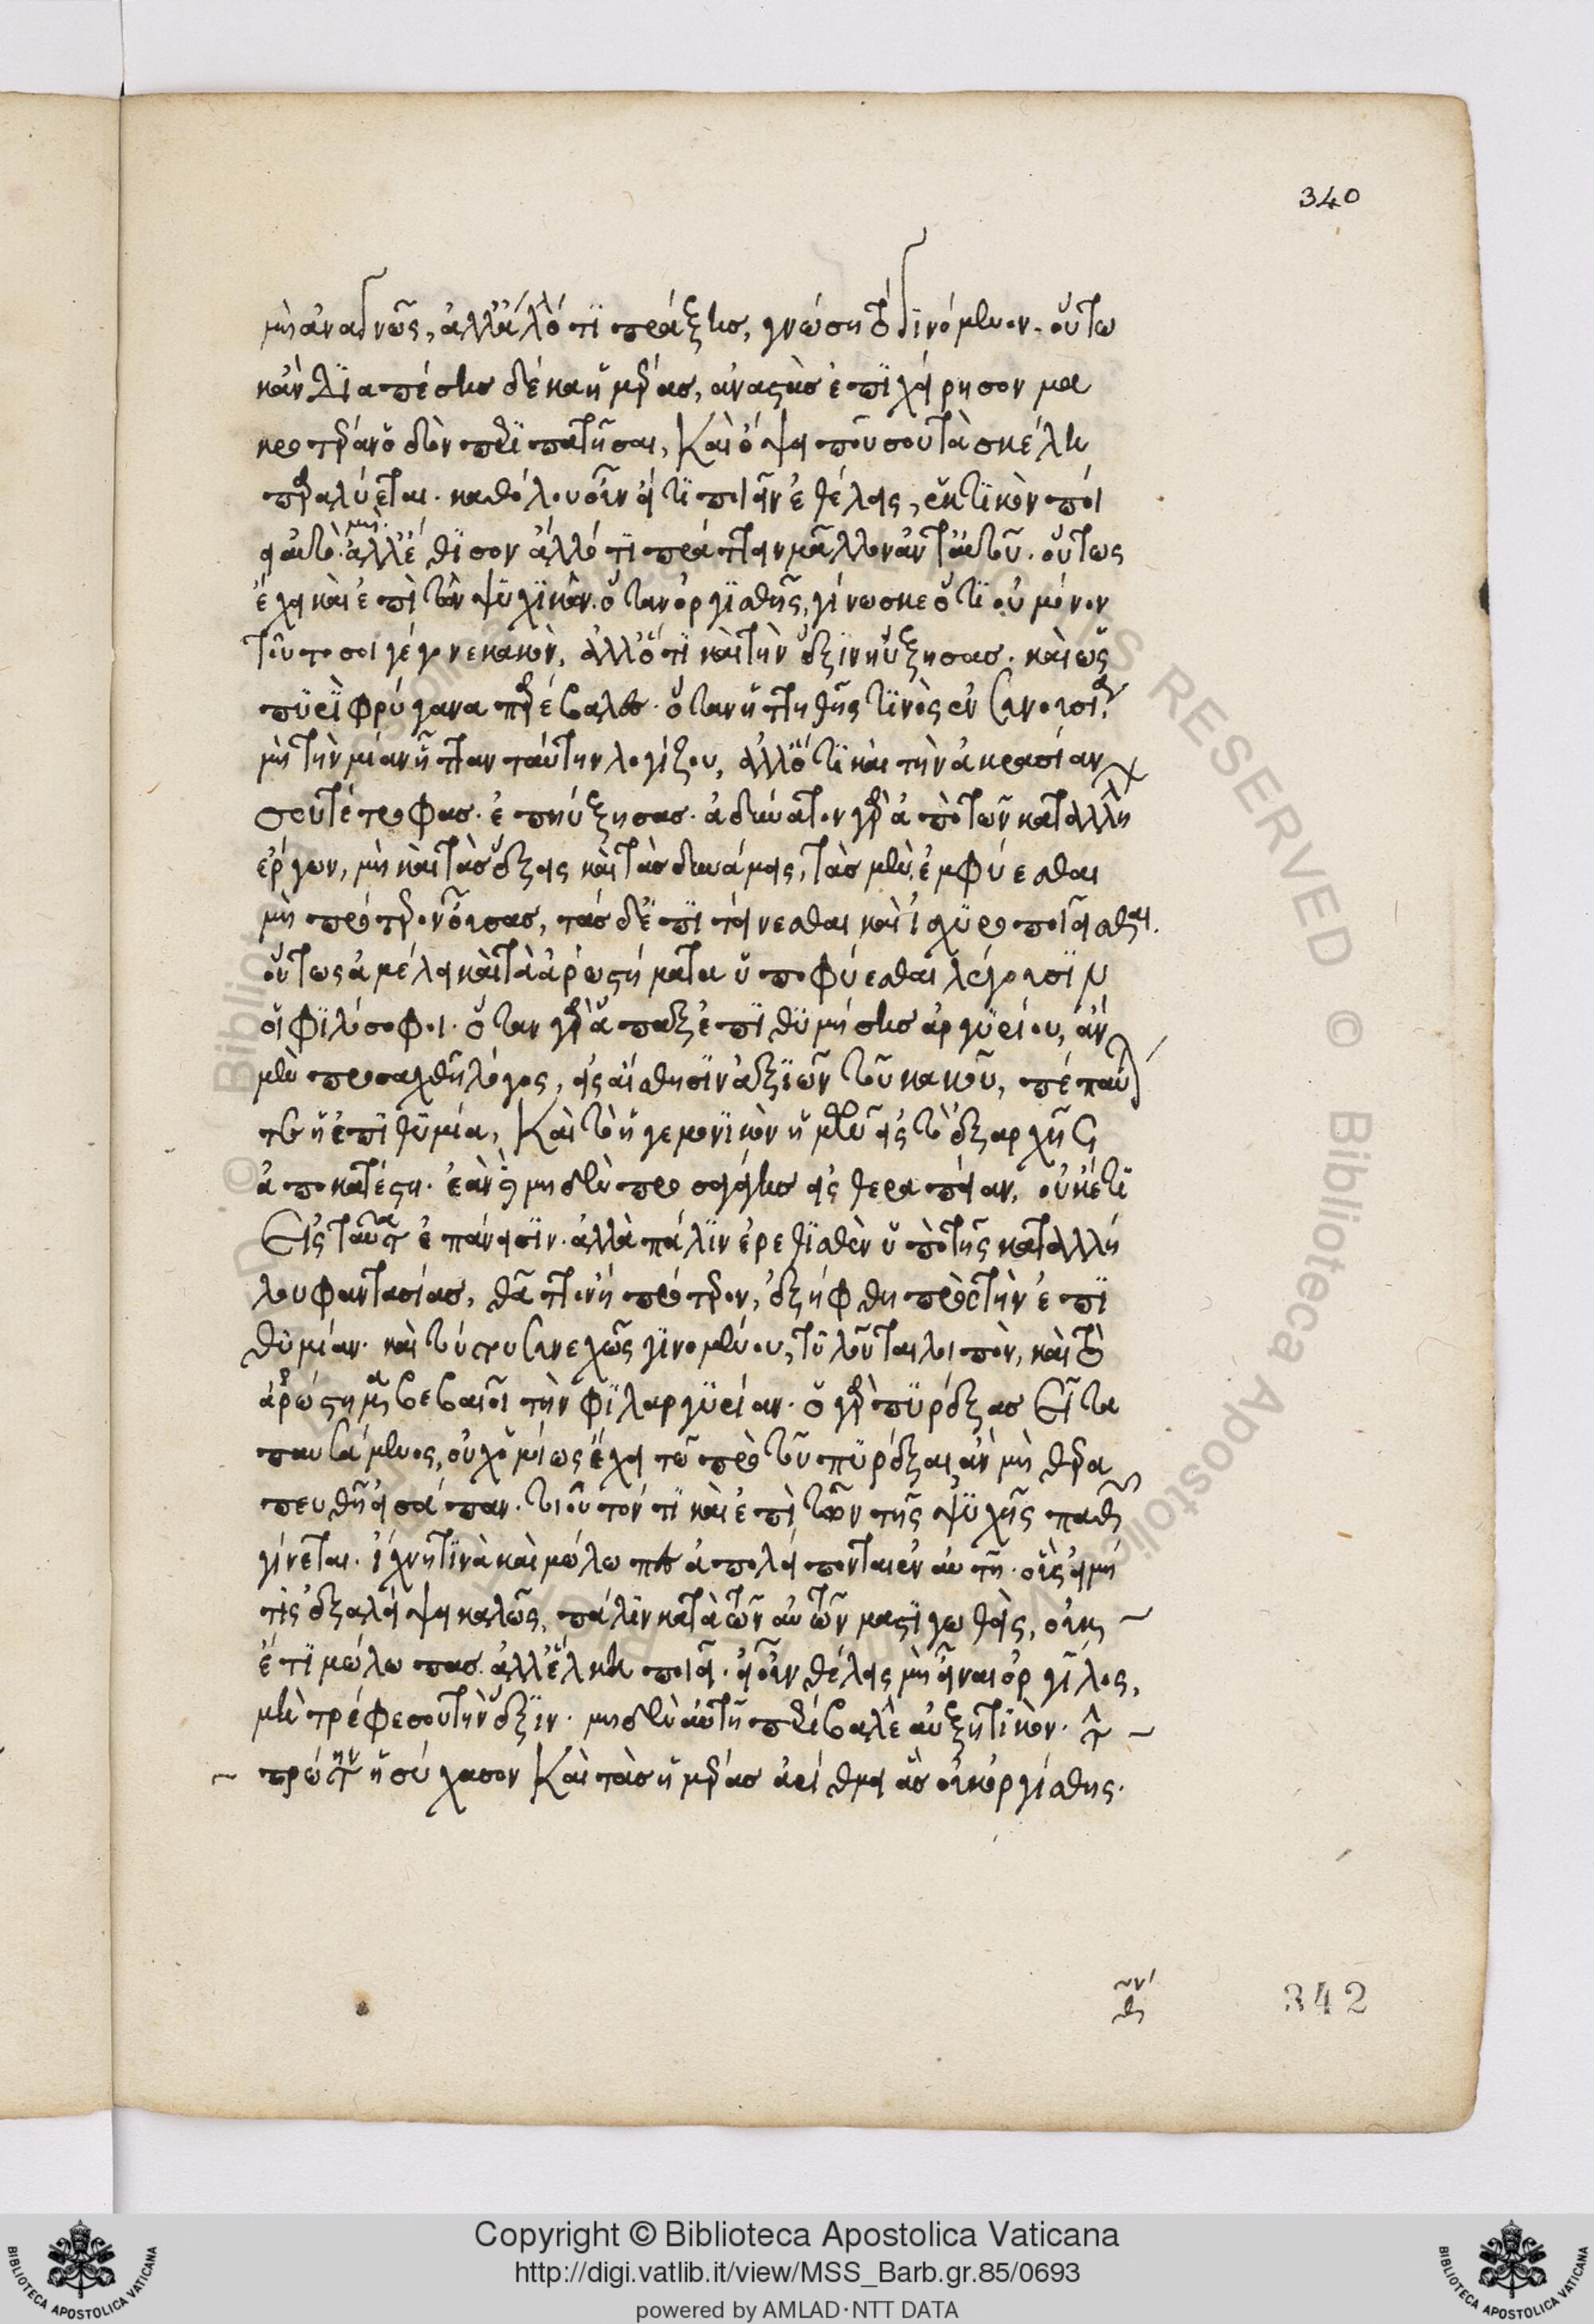 340
μὴ ἀναγνῶς, ἀλλ' ἄλλό τι πράξεις, γνώση τὸ γινόμενον. οὕτω
κἂν διαπέσεις δέκα ἡμέρας, ἀναστὰς ἐπιχείρησον μα
κροτέραν ὁδὸν περιπατῆσαι, καὶ ὄψει πῶς σου τὰ σκέλη
παραλύεται. καθόλου οὖν εἴ τι ποιεῖν ἐθέλεις, ἑκτικὸν ποί
ει αὐτό. μὴ ἀλλ' ἔθισον ἄλλό τι πράττειν μᾶλλον ἀντ' αὐτοῦ. οὕτως
ἔχει καὶ ἐπὶ τῶν ψυχικῶν. ὅταν ὀργισθῇς, γίνωσκε ὅτι οὐ μόνον
τοῦτο σοι γέγονε κακὸν, ἀλλ' ὅτι καὶ τὴν ἕξιν ηὔξησας. καὶ ὡς
πυρὶ φρύγανα παρέβαλες. ὅταν ἡττηθῇς τινὸς ἐν συνουσίᾳ,
μὴ τὴν μίαν ἧτταν ταύτην λογίζου, ἀλλ' ὅτι καὶ τὴν ἀκρασίαν
σου τέτροφας. ἐπηύξησας. ἀδύνατον γὰρ ἀπὸ τῶν καταλλήλων
ἔργων, μὴ καὶ τὰς ἕξεις καὶ τὰς δυνάμεις, τὰς μὲν ἐμφύεσθαι
μὴ πρότερον οὔσας, τὰς δ' ἐπιτείνεσθαι καὶ ἰσχυροποιεῖσθαι.
οὕτως ἀμέλει καὶ τὰ ἀρωστήματα ὑποφύεσθαι λέγουσιν
οἱ φιλόσοφοι. ὅταν γὰρ ἅπαξ ἐπιθυμήσεις ἀργυρίου, ἂν
μὲν προσαχθῇ λόγος, εἰς αἴσθησιν ἄξων τοῦ κακοῦ, πέπαυ
ται ἡ ἐπιθυμία, καὶ τὸ ἡγεμονικὸν ἡμῶν εἰς τὸ ἐξαρχῆς
ἀποκατέστη. ἐὰν δὲ μηδὲν προσαγάγεις εἰς θεραπείαν, οὐκέτι
εἰς ταυτὰ ἐπάνεισιν. ἀλλὰ πάλιν ἐρεθισθὲν ὑπὸ τῆς καταλλή
λου φαντασίας, θᾶττον ἢ πρότερον, ἐξήφθη πρὸς τὴν ἐπι
θυμίαν. καὶ τούτου συνεχῶς γινομένου, τυλοῦται λοιπὸν, καὶ τὸ
ἀρώστημα βεβαιοῖ τὴν φιλαργυρίαν. ὁ γὰρ πυρέξας εἶτα
παυσάμενος, οὐχ ὁμοίως ἔχει τῷ πρὸ τοῦ πυρέξαι, ἂν μὴ θερα
πευθῇ εἰσάπαν. τοιοῦτόν τι καὶ ἐπὶ τῶν τῆς ψυχῆς παθῶν
γίνεται. ἴχνη τινὰ καὶ μώλωπες ἀπολείπονται ἐν αὐτῇ. οὓς εἰ μή
τις ἐξαλείψει καλῶς, πάλιν κατὰ τῶν αὐτῶν μαστιγωθεὶς, οὐκ
έτι μώλωπας ἀλλ' ἕλκη ποιεῖ. εἰ οὖν θέλεις μὴ εἶναι ὀργίλος,
μὴ τρέφε σου τὴν ἕξιν. μηδὲν αὐτῇ περίβαλε αὐξητικόν. τὴν
πρώτην ἡσύχασον καὶ τὰς ἡμέρας ἀρίθμει ἃς οὐκ ὠργίσθης.
342
Copyright © Biblioteca Apostolica Vaticana
http://digi.vatlib.it/view/MSS_Barb.gr.85/0693
powered by AMLAD·NTT DATA